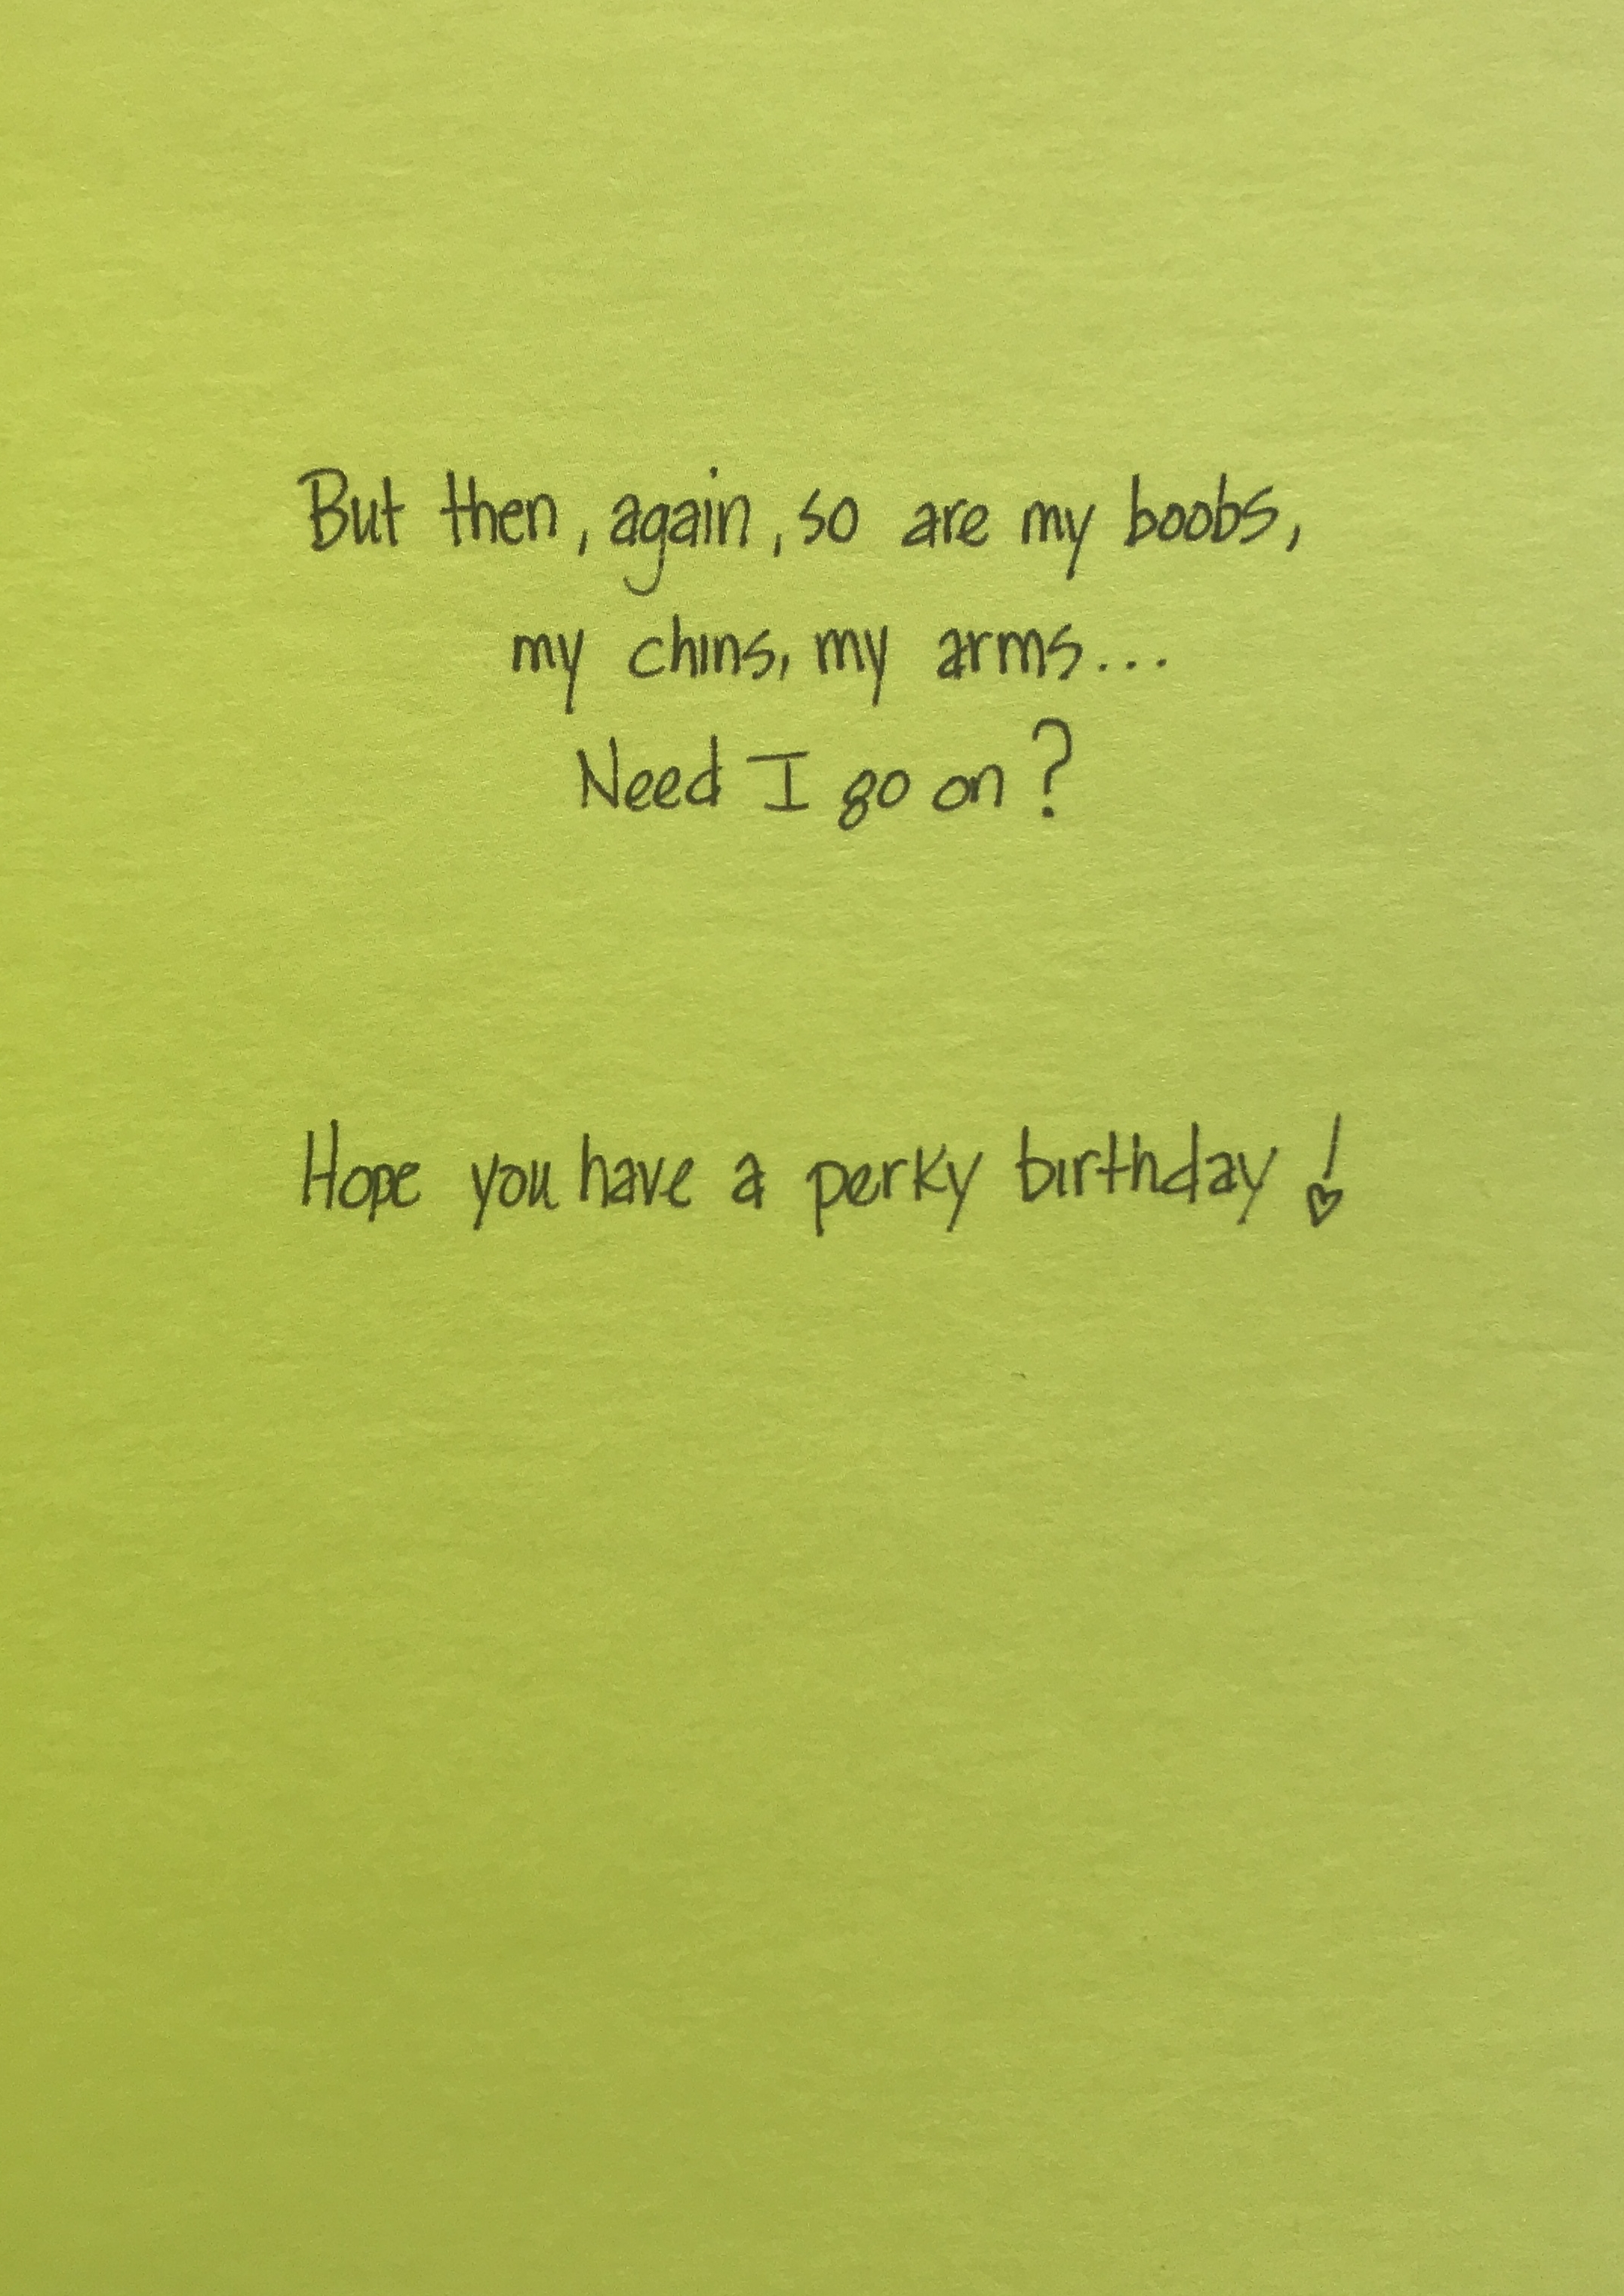 But then, again, so are my boobs,
my chins, my arms...
Need I go on?
Hope you have a perky birthday!